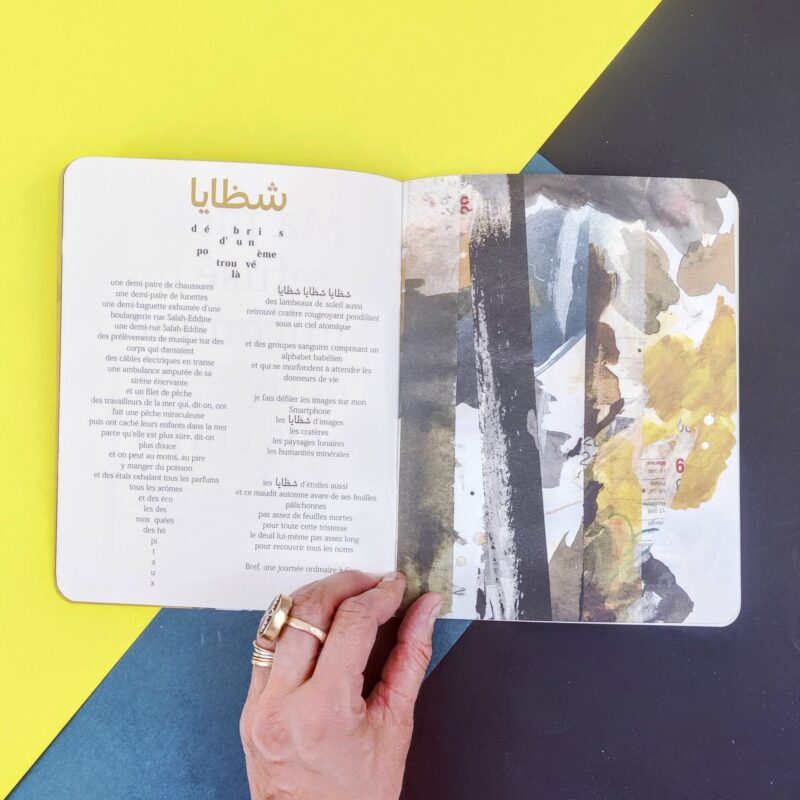 شظايا
dé bris
d' un
po ème
trou vé
là
une demi-paire de chaussures
une demi-paire de lunettes
une demi-baguette exhumée d'une
boulangerie rue Salah-Eddine
une demi-rue Salah-Eddine
des prélèvements de musique sur des
corps qui dansaient
des câbles électriques en transe
une ambulance amputée de sa
sirène énervante
et un filet de pêche
des travailleurs de la mer qui, dit-on, ont
fait une pêche miraculeuse
puis ont caché leurs enfants dans la mer
parce qu'elle est plus sûre, dit-on
plus douce
et on peut au moins, au pire
y manger du poisson
et des étals exhalant tous les parfums
tous les arômes
et des éco
les des
mos quées
des hô
pi
t
a
u
x
شظايا شظايا شظايا
des lambeaux de soleil aussi
retrouvé cratère rougeoyant pendillant
sous un ciel atomique
et des groupes sanguins composant un
alphabet babélien
et qui se morfondent à attendre les
donneurs de vie
je fais défiler les images sur mon
Smartphone
les شظايا d'images
les cratères
les paysages lunaires
les humanités minérales
les شظايا d'étoiles aussi
et ce maudit automne avare de ses feuilles
pâlichonnes
pas assez de feuilles mortes
pour toute cette tristesse
le deuil lui-même pas assez long
pour recouvrir tous les noms
Bref, une journée ordinaire à
9
Marius